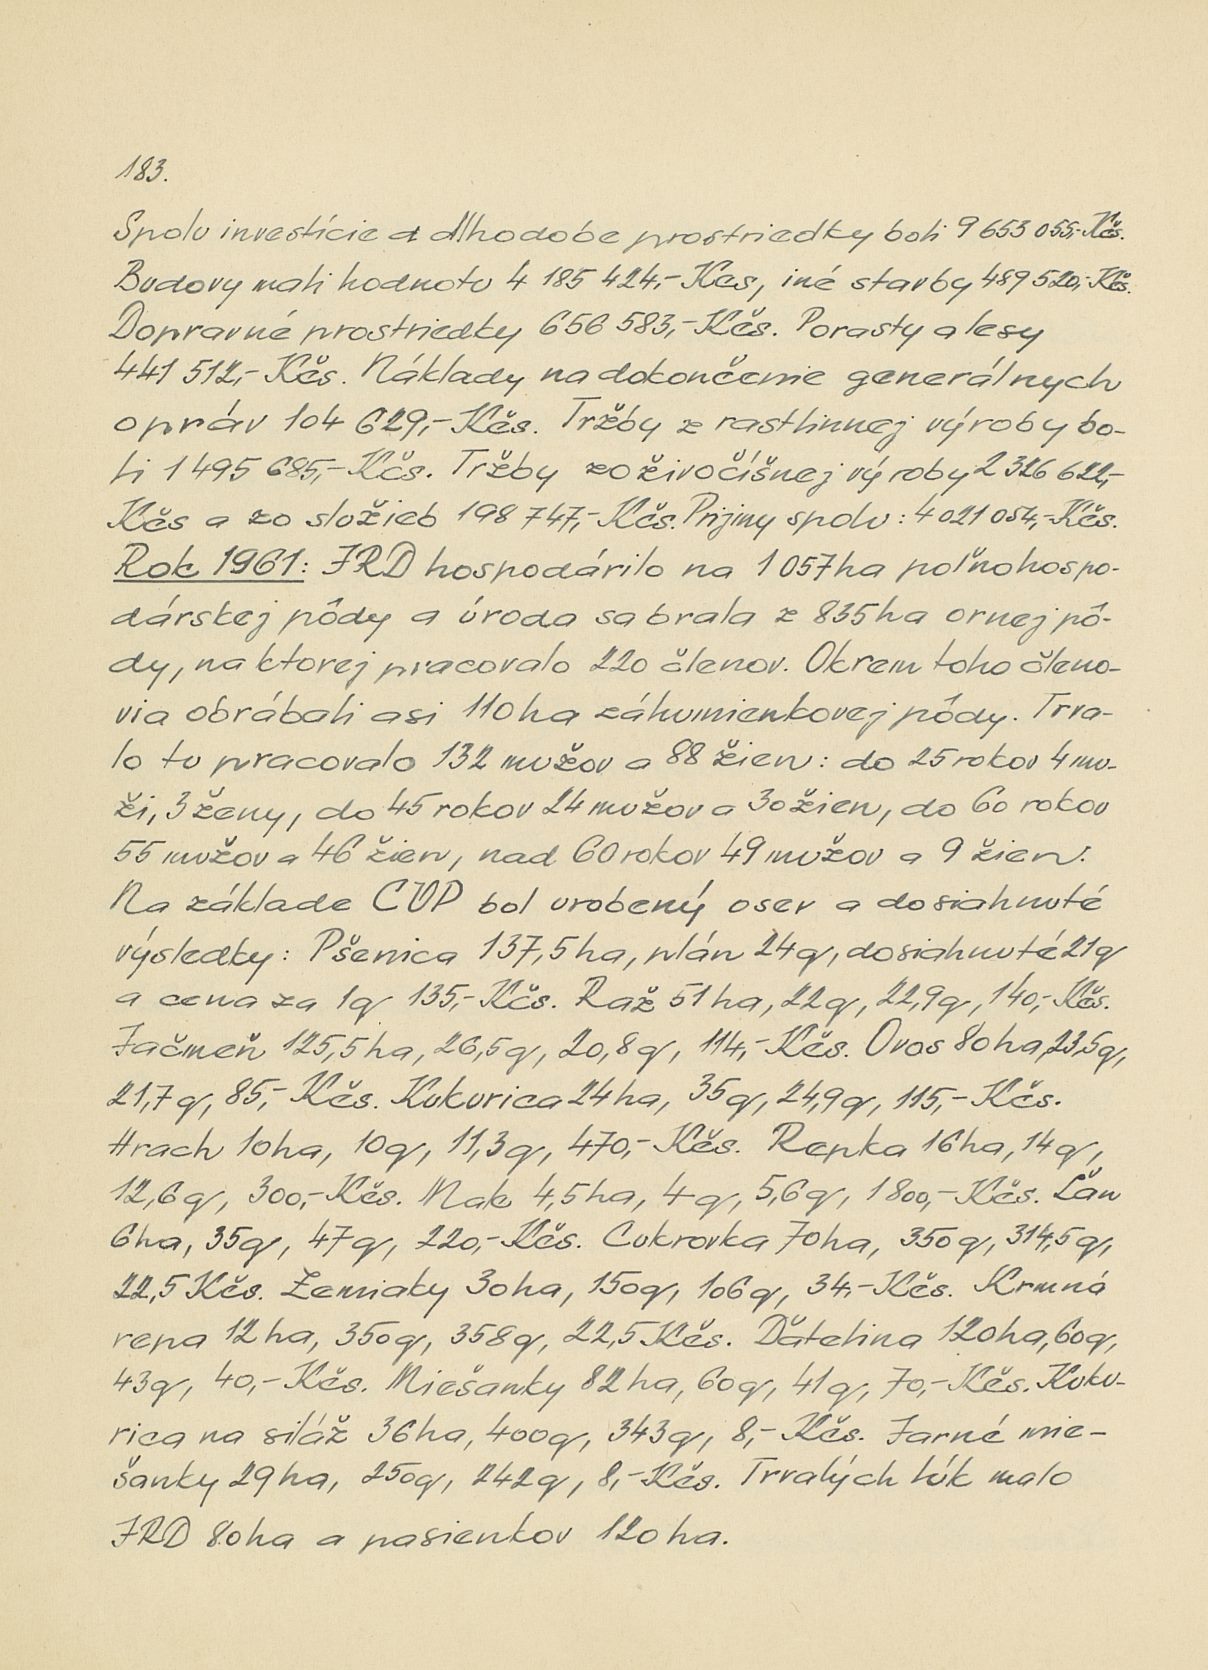 183.
Spolu investície a dlhodobe prostriedky boli 9 653 055,- Kčs.
Budovy mali hodnotu 4 185 424,- Kčs, iné stavby 489 520,- Kčs.
Dopravné prostriedky 656 583,- Kčs. Porasty a lesy
441 512,- Kčs. Náklady na dokončenie generálnych
opráv 104 629,- Kčs. Tržby z rastlinnej výroby bo-
li 1 495 685,- Kčs. Tržby zo živočíšnej výroby 2 326 622,-
Kčs a zo služieb 198 747,- Kčs. Prijmy spolu: 4 021 054,- Kčs.
Rok 1961: JRD hospodárilo na 1 057 ha poľnohospo-
dárskej pôdy a úroda sa brala z 835 ha ornej pô-
dy, na ktorej pracovalo 220 členov. Okrem toho členo-
via obrábali asi 110 ha záhumienkovej pôdy. Trva-
lo tu pracovalo 132 mužov a 88 žien: do 25 rokov 4 mu-
ži, 3 ženy, do 45 rokov 24 mužov a 30 žien, do 60 rokov
55 mužov a 46 žien, nad 60 rokov 49 mužov a 9 žien.
Na základe CVP bol urobený osev a dosiahnuté
výsledky: Pšenica 137,5 ha, plán 24 q, dosiahnuté 21 q
a cena za 1 q 135,- Kčs. Raž 51 ha, 22 q, 22,9 q, 140,- Kčs.
Jačmeň 125,5 ha, 26,5 q, 20,8 q, 114,- Kčs. Ovos 80 ha, 23,5 q,
21,7 q, 85,- Kčs. Kukurica 24 ha, 35 q, 24,9 q, 115,- Kčs.
Hrach 10 ha, 10 q, 11,3 q, 470,- Kčs. Repka 16 ha, 14 q,
12,6 q, 300,- Kčs. Mak 4,5 ha, 4 q, 5,6 q, 1 800,- Kčs. Ľan
6 ha, 35 q, 47 q, 220,- Kčs. Cukrovka 70 ha, 350 q, 314,5 q,
22,5 Kčs. Zemiaky 30 ha, 150 q, 106 q, 34,- Kčs. Krmná
repa 12 ha, 350 q, 358 q, 22,5 Kčs. Ďatelina 120 ha, 60 q,
43 q, 40,- Kčs. Miešanky 82 ha, 60 q, 41 q, 70,- Kčs. Kuku-
rica na siláž 36 ha, 400 q, 343 q, 8,- Kčs. Jarné mie-
šanky 29 ha, 250 q, 242 q, 8,- Kčs. Trvalých lúk malo
JRD 80 ha a pasienkov 120 ha.